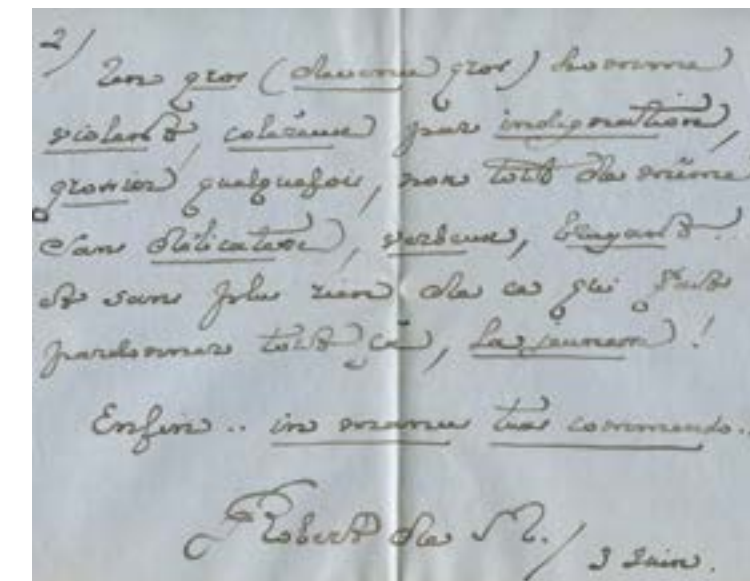 2/
Un gros (devenu gros) homme
violent, coléreux par indignation,
grossier quelquefois, non tout de même
sans délicatesse, verbeux, bruyant.
Et sans plus rien de ce qui fait
pardonner tout ça, la jeunesse !
Enfin .. in manus tuas commendo..
Robert de M. / 3 Juin.